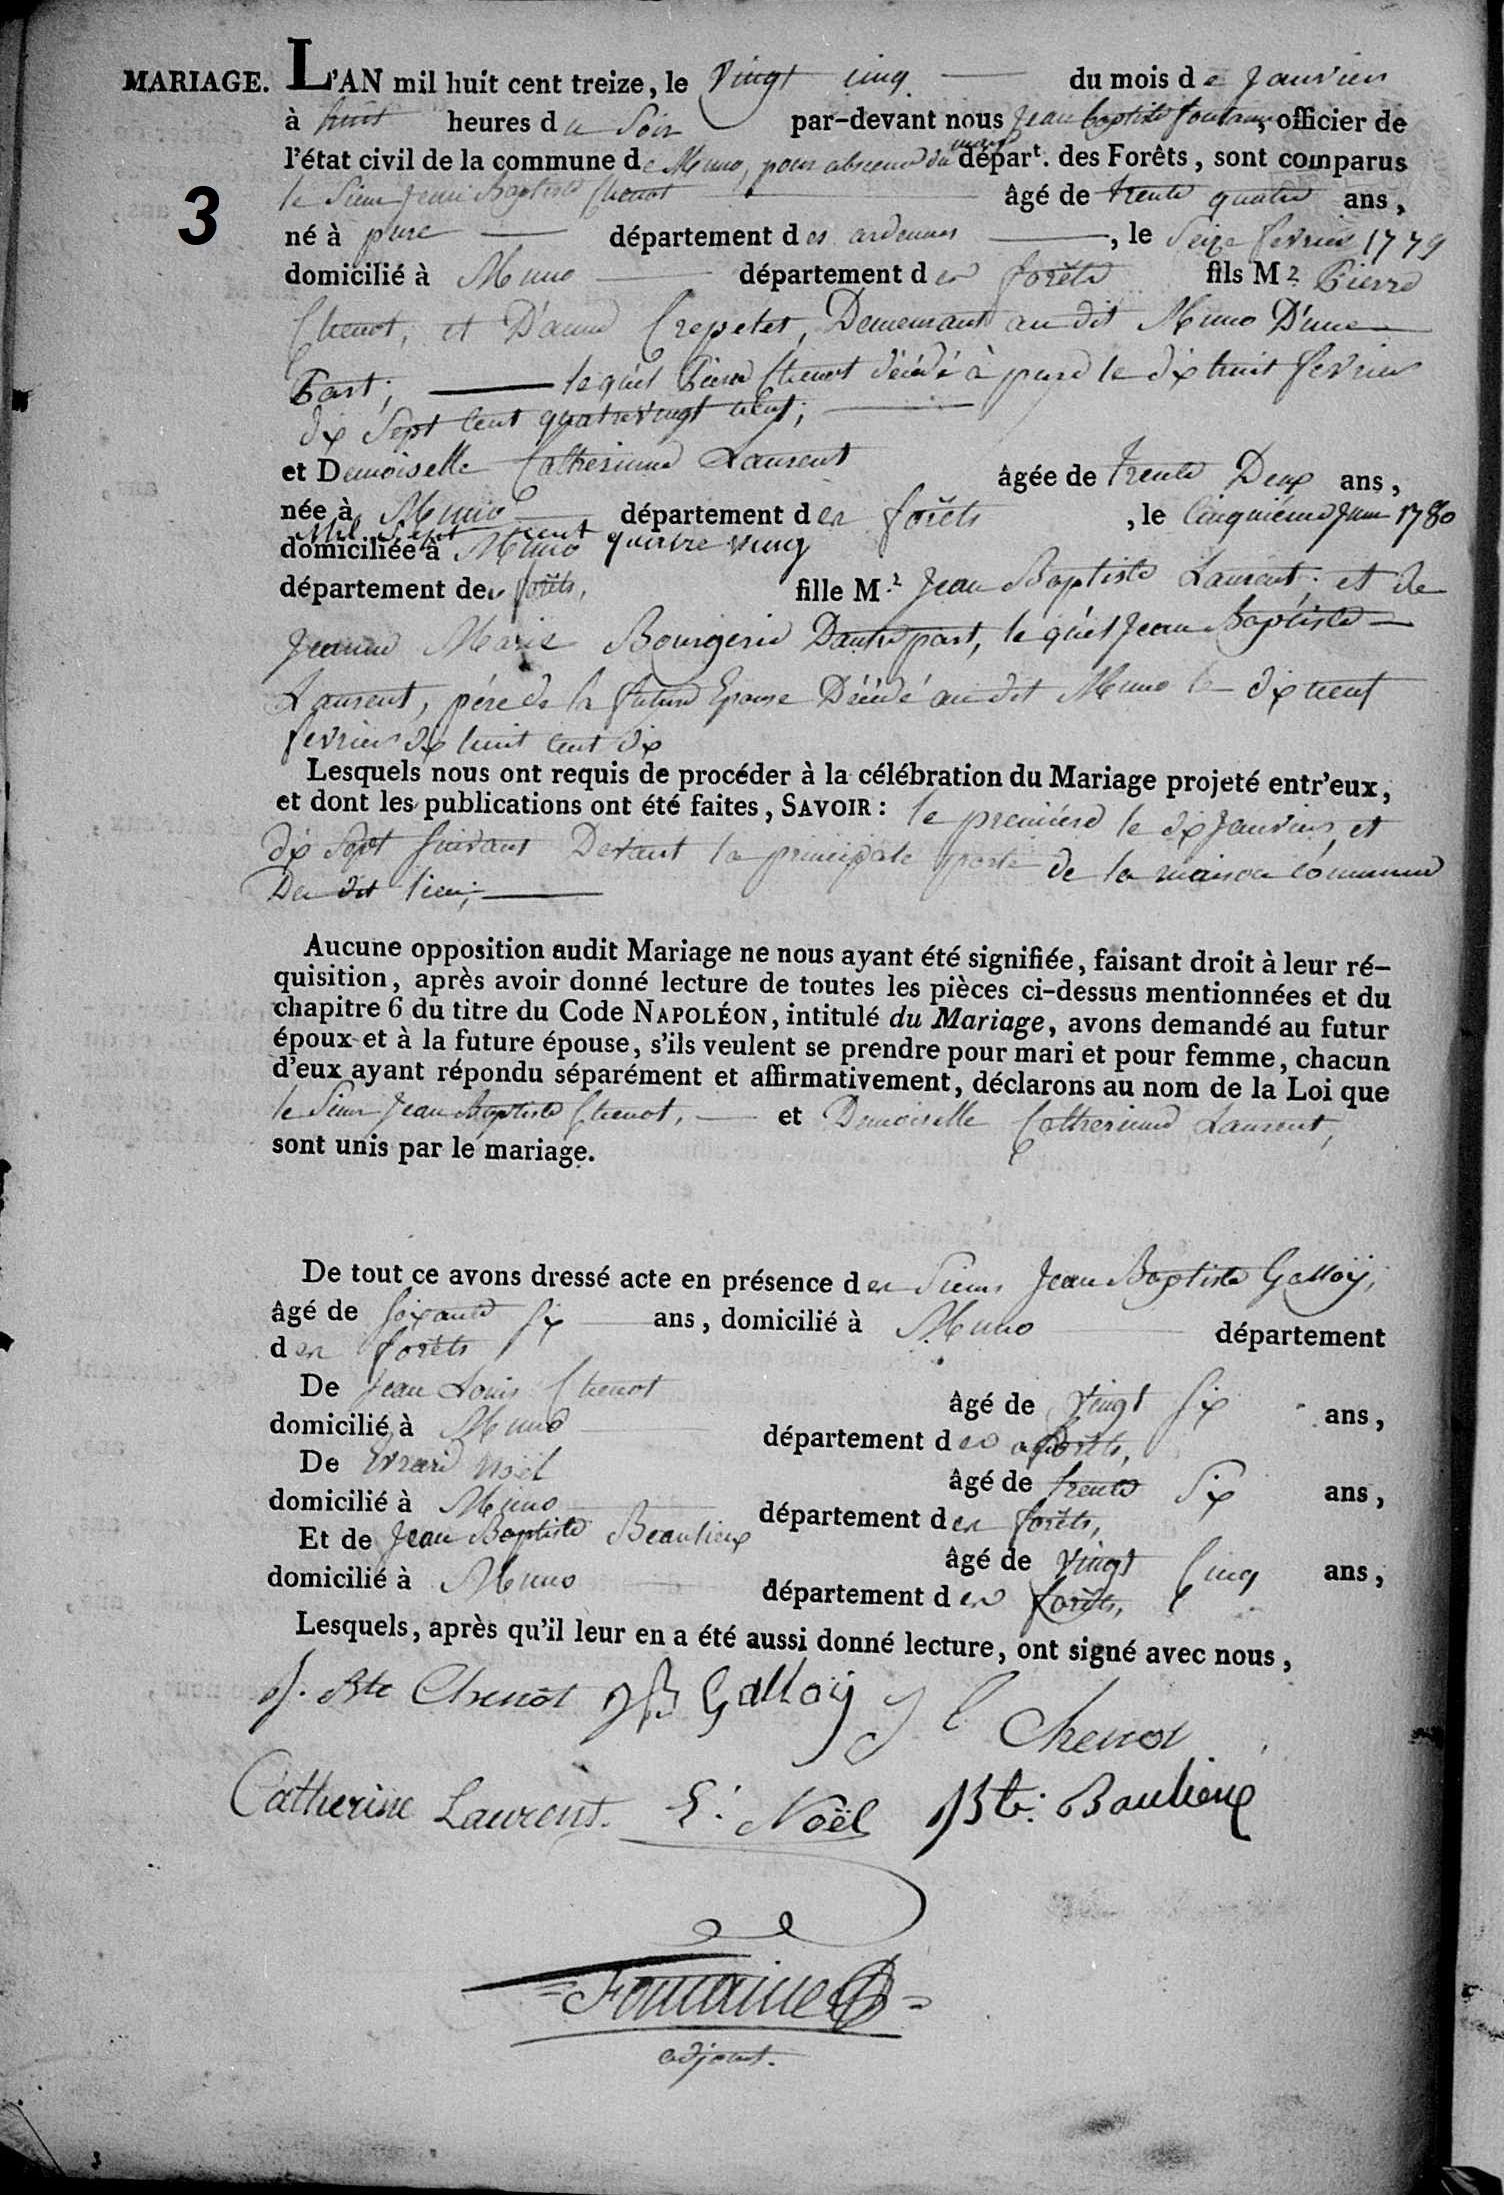 MARIAGE. L'AN mil huit cent treize, le Vingt cinq du mois de Janvier
à huit heures du Soir par-devant nous Jean Baptiste fontaine, officier de
l'état civil de la commune de Muno, pour absence du maire départ. des Forêts, sont comparus
3
le Sieur Jean Baptiste Chenot âgé de trente quatre ans,
né à pure département des ardennes, le Seize fevrier 1779
domicilié à Muno département des forêts fils Mr. Pierre
Chenot, et D'anne Crepelet, Demeurant au dit Muno D'une
Part; le quel Pierre Chenot décédé à pure le dix huit fevrier
dix Sept Cent quatre vingt neuf;
et Demoiselle Catherinne Laurent âgée de trente Deux ans,
née à Muno département des forêts, le Cinquième Juin 1780
Mil Sept cent quatre ving
domiciliée à Muno
département des forêts, fille Mr. Jean Baptiste Laurent, et de
Jeanne Marie Bourgerie Dautre part, le quel Jean Baptiste
Laurent, père de la future Epouse Décédé au dit Muno le dix neuf
fevrier dix huit Cent dix
Lesquels nous ont requis de procéder à la célébration du Mariage projeté entr'eux,
et dont les publications ont été faites, SAVOIR : le première le dix Janvier, et
dix Sept Suivant Devant la principale porte de la maison Commune
Du dit lieu;
Aucune opposition audit Mariage ne nous ayant été signifiée, faisant droit à leur ré-
quisition, après avoir donné lecture de toutes les pièces ci-dessus mentionnées et du
chapitre 6 du titre du Code NAPOLÉON, intitulé du Mariage, avons demandé au futur
époux et à la future épouse, s'ils veulent se prendre pour mari et pour femme, chacun
d'eux ayant répondu séparément et affirmativement, déclarons au nom de la Loi que
le Sieur Jean Baptiste Chenot, et Demoiselle Catherinne Laurent,
sont unis par le mariage.
De tout ce avons dressé acte en présence des Sieurs Jean Baptiste Galloÿ,
âgé de Soixante Six ans, domicilié à Muno département
des forêts
De Jean Louis Chenot âgé de vingt Six ans,
domicilié à Muno département des forêts,
De Evrard Noël âgé de trente Six ans,
domicilié à Muno département des forêts,
Et de Jean Baptiste Beaulieux âgé de vingt Cinq ans,
domicilié à Muno département des forêts,
Lesquels, après qu'il leur en a été aussi donné lecture, ont signé avec nous,
J. Bte Chenot JB Galloÿ J l Chenot
Catherine Laurent. E. Noël JBte: Baulieux
Fontaine
adjoint.